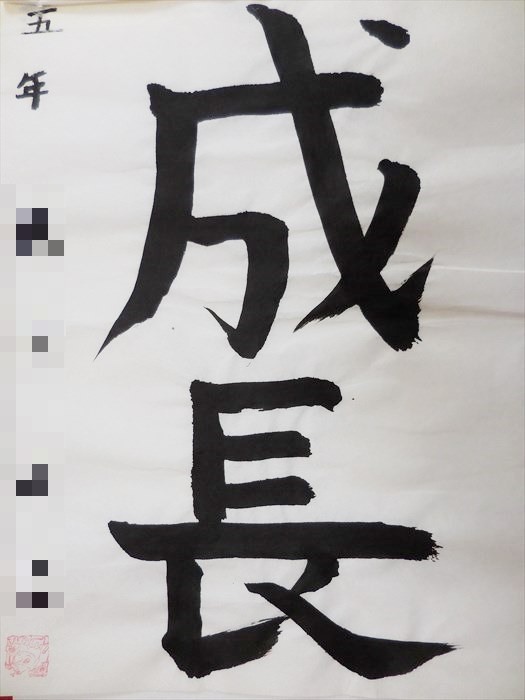 成長
五年